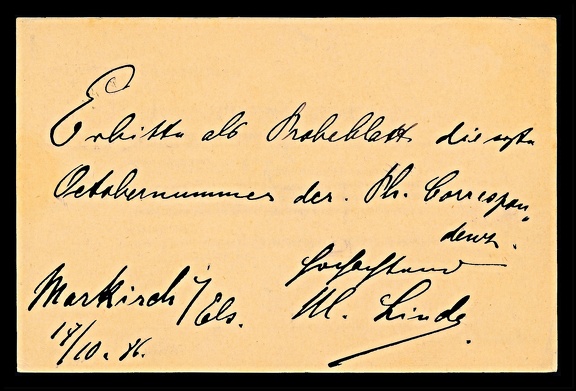 Erbitte als Probeblatt die erste
Octobernummer der Ph. Correspon„
denz.
Hochachtend
Markirch i/Els. M. Linde.
14/10. 86.